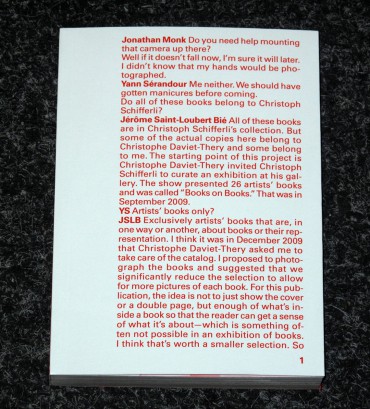 Jonathan Monk Do you need help mounting
that camera up there?
Well if it doesn't fall now, I'm sure it will later.
I didn't know that my hands would be pho-
tographed.
Yann Sérandour Me neither. We should have
gotten manicures before coming.
Do all of these books belong to Christoph
Schifferli?
Jérôme Saint-Loubert Bié All of these books
are in Christoph Schifferli's collection. But
some of the actual copies here belong to
Christophe Daviet-Thery and some belong
to me. The starting point of this project is
Christophe Daviet-Thery invited Christoph
Schifferli to curate an exhibition at his gal-
lery. The show presented 26 artists' books
and was called "Books on Books." That was in
September 2009.
YS Artists' books only?
JSLB Exclusively artists' books that are, in
one way or another, about books or their rep-
resentation. I think it was in December 2009
that Christophe Daviet-Thery asked me to
take care of the catalog. I proposed to photo-
graph the books and suggested that we
significantly reduce the selection to allow
for more pictures of each book. For this pub-
lication, the idea is not to just show the cover
or a double page, but enough of what's in-
side a book so that the reader can get a sense
of what it's about—which is something of-
ten not possible in an exhibition of books.
I think that's worth a smaller selection. So
1